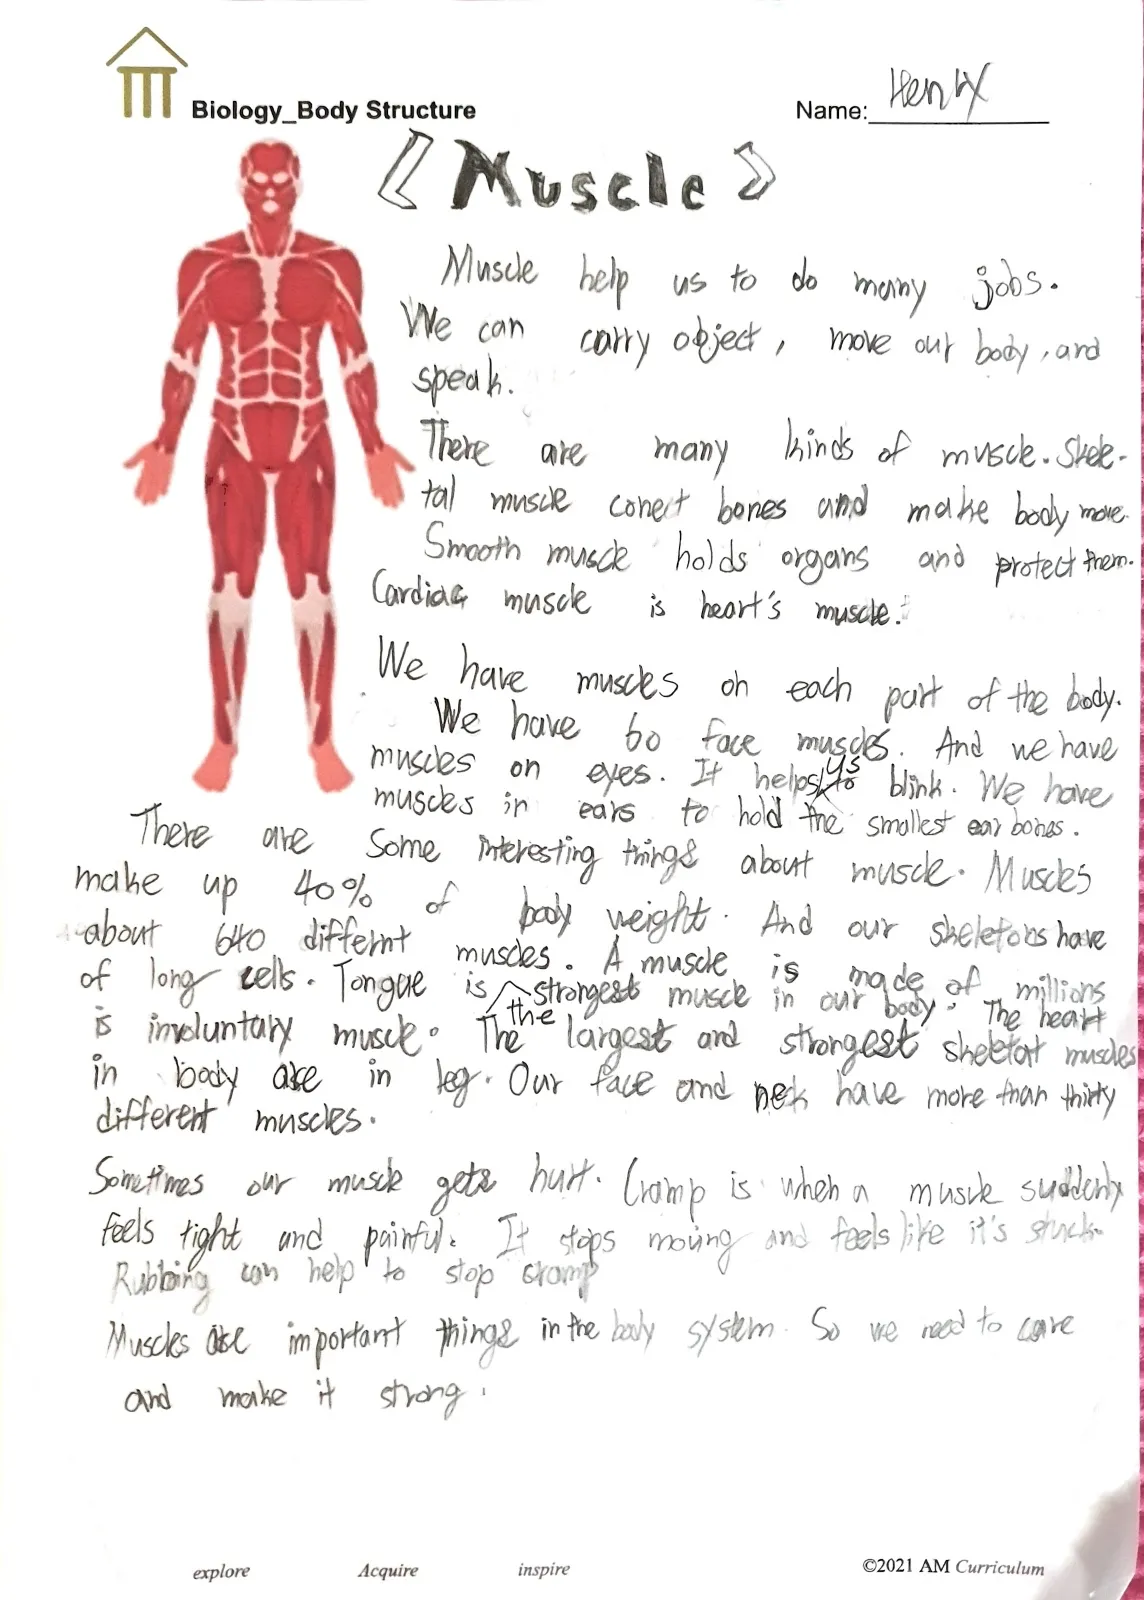 Biology_Body Structure
Name: Henry
《Muscle》
Muscle help us to do many jobs.
We can carry object, move our body, and
speak.
There are many kinds of muscle. Skele-
tal muscle conect bones and make body move.
Smooth muscle holds organs and protect them.
Cardiac muscle is heart's muscle.
We have muscles on each part of the body.
We have 60 face muscles. And we have
muscles on eyes. It helps us to blink. We have
muscles in ears to hold the smallest ear bones.
There are some interesting things about muscle. Muscles
make up 40% of body weight. And our skeletons have
about 640 differnt muscles. A muscle is made of millions
of long cells. Tongue is the strongest muscle in our body. The heart
is involuntary muscle. The largest and strongest skeletat muscles
in body are in leg. Our face and neck have more than thirty
different muscles.
Sometimes our muscle gets hurt. Cramp is when a muscle suddenly
feels tight and painful. It stops moving and feels like it's stuck.
Rubbing can help to stop cramp
Muscles are important things in the body system. So we need to care
and make it strong.
explore Acquire inspire
©2021 AM Curriculum